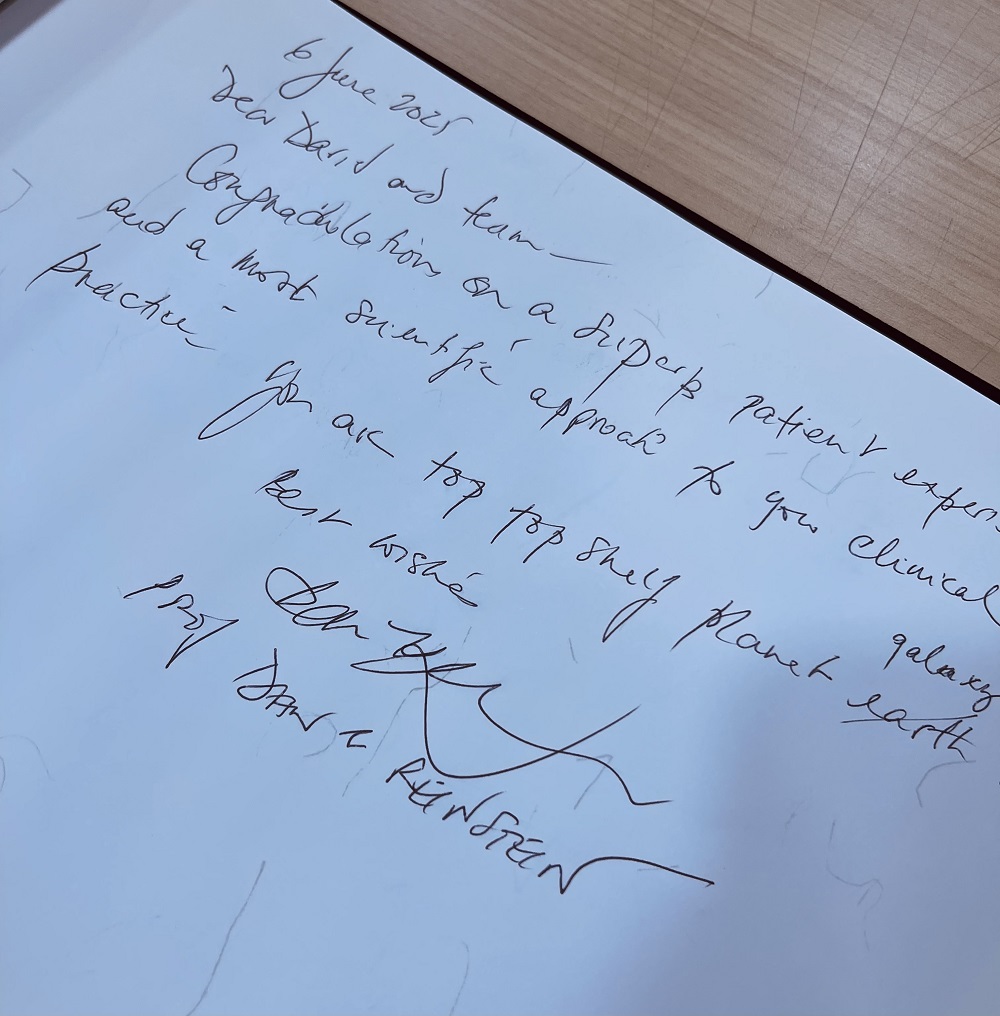 6 June 2025
Dear David and team —
Congradulations on a superb patient exper
and a most scientific approach to your clinical
practice - you are top top shelf planet earth galaxy
Best wishes
PROF DAN Z REINSTEIN